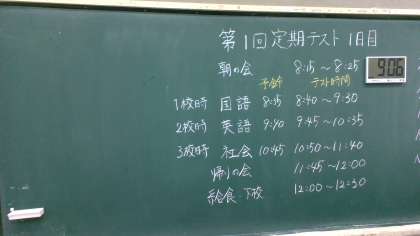 第1回定期テスト 1日目
朝の会 8:15～8:25
9:06
予鈴 テスト時間
1校時 国語 8:35 8:40～9:30
2校時 英語 9:40 9:45～10:35
3校時 社会 10:45 10:50～11:40
帰りの会 11:45～12:00
給食・下校 12:00～12:30